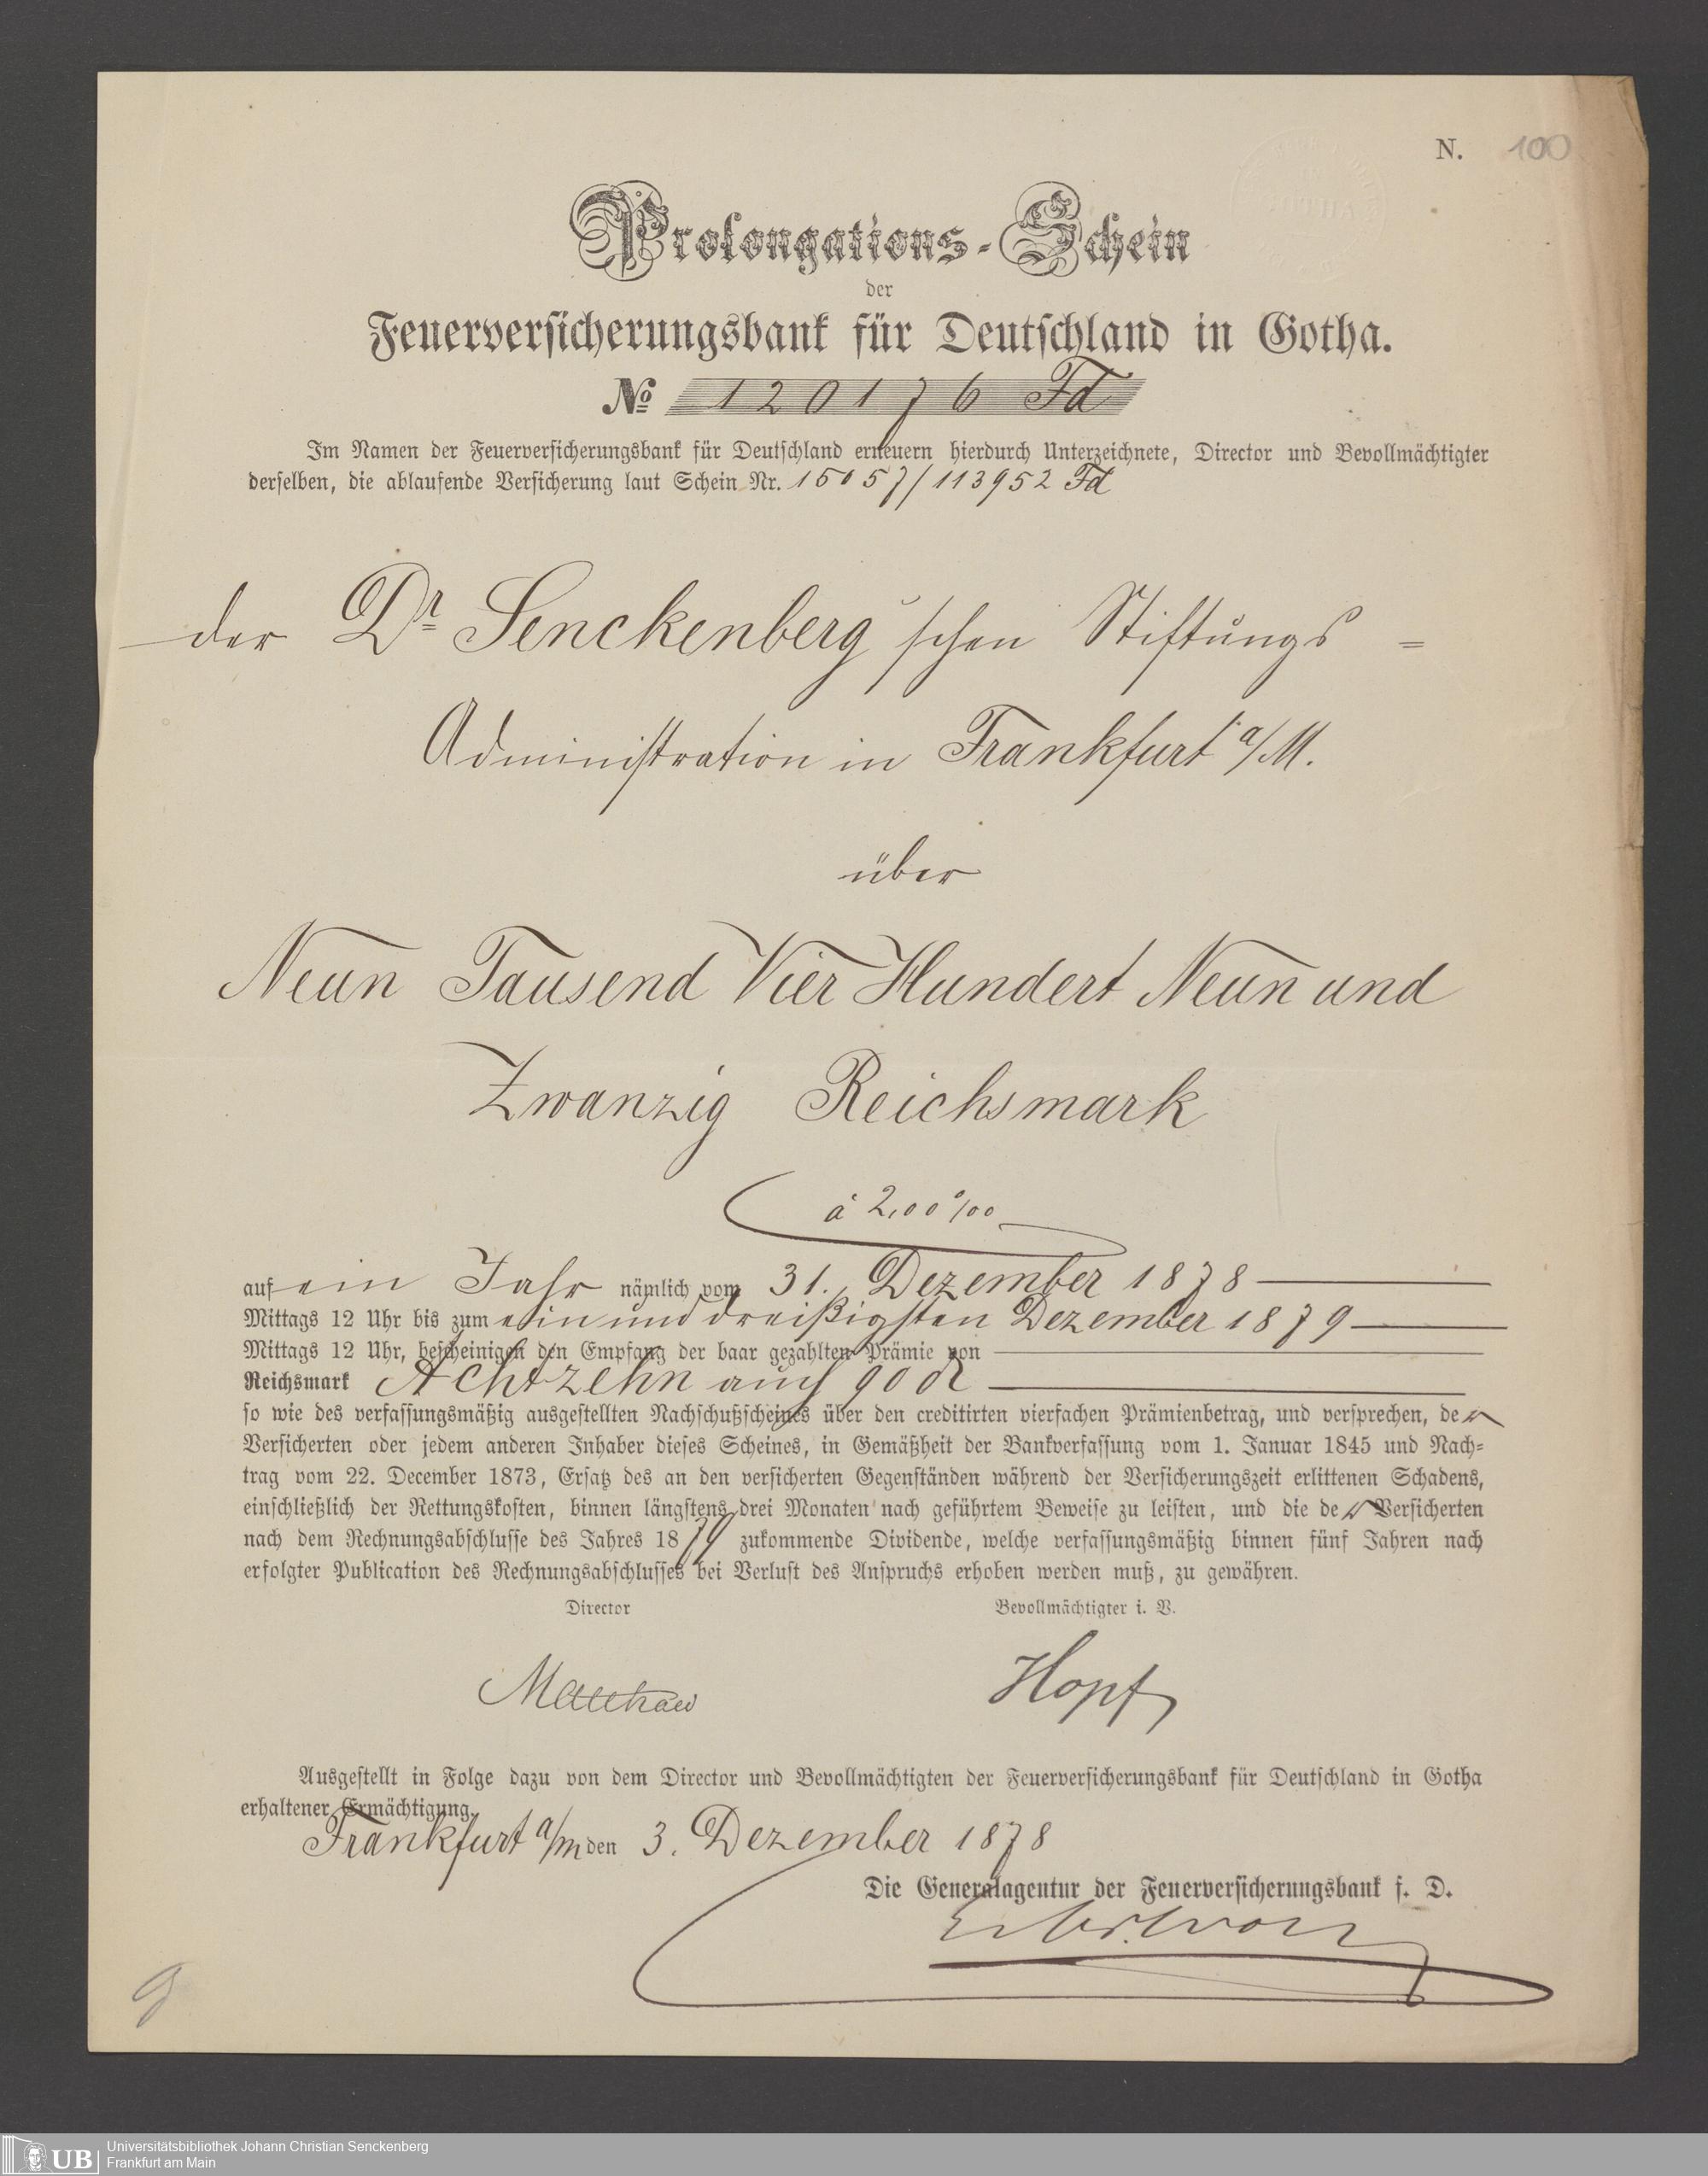 N. 100
Prolongations-Schein
der
Feuerversicherungsbank für Deutschland in Gotha.
No 120176 Fd
Im Namen der Feuerversicherungsbank für Deutschland erneuern hierdurch Unterzeichnete, Director und Bevollmächtigter
derselben, die ablaufende Versicherung laut Schein Nr. 15057/113952 Fd
der Dr Senckenberg'schen Stiftungs =
Administration in Frankfurt a/M.
über
Neun Tausend Vier Hundert Neun und
Zwanzig Reichsmark
á 2,00 %00
auf ein Jahr nämlich vom 31. Dezember 1878
Mittags 12 Uhr bis zum ein und dreißigsten Dezember 1879
Mittags 12 Uhr, bescheinigen den Empfang der baar gezahlten Prämie von
Reichsmark Achtzehn auch 90 ₰
so wie des verfassungsmäßig ausgestellten Nachschußscheines über den creditirten vierfachen Prämienbetrag, und versprechen, den
Versicherten oder jedem anderen Inhaber dieses Scheines, in Gemäßheit der Bankverfassung vom 1. Januar 1845 und Nach-
trag vom 22. December 1873, Ersatz des an den versicherten Gegenständen während der Versicherungszeit erlittenen Schadens,
einschließlich der Rettungskosten, binnen längstens drei Monaten nach geführtem Beweise zu leisten, und die den Versicherten
nach dem Rechnungsabschlusse des Jahres 1879 zukommende Dividende, welche verfassungsmäßig binnen fünf Jahren nach
erfolgter Publication des Rechnungsabschlusses bei Verlust des Anspruchs erhoben werden muß, zu gewähren.
Director Bevollmächtigter i. V.
Hopf
Ausgestellt in Folge dazu von dem Director und Bevollmächtigten der Feuerversicherungsbank für Deutschland in Gotha
erhaltener Ermächtigung.
Frankfurt a/m den 3. Dezember 1878
Die Generalagentur der Feuerversicherungsbank f. D.
UB Universitätsbibliothek Johann Christian Senckenberg
Frankfurt am Main